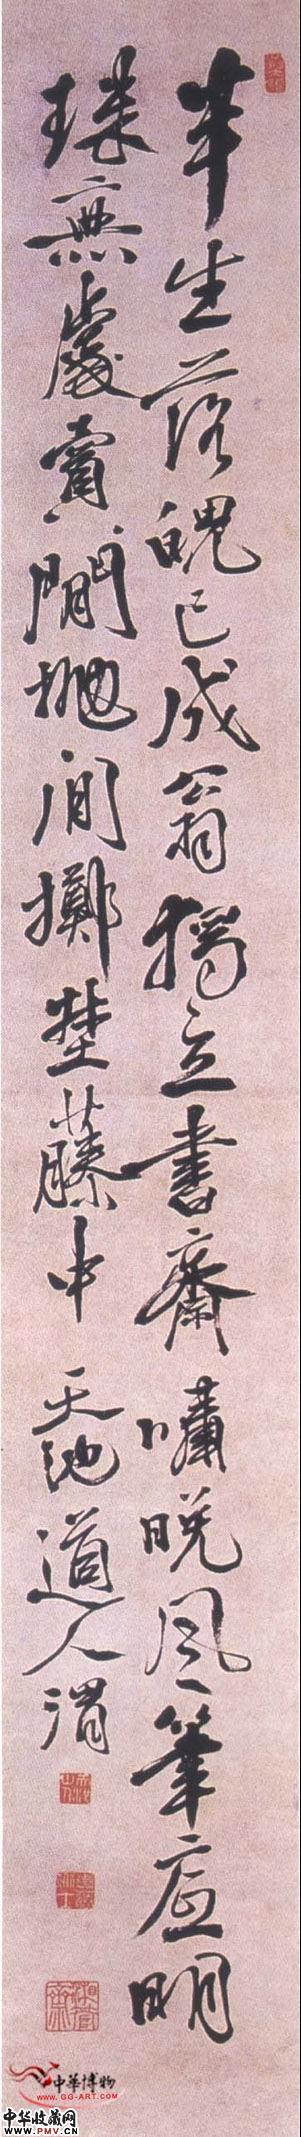 半生落魄已成翁獨立書齋嘯晚風筆底明
珠無處賣閒拋閒擲埜藤中 天池道人渭
中華博物
WWW.GG-ART.COM
中华收藏网
WWW.PMV.CN